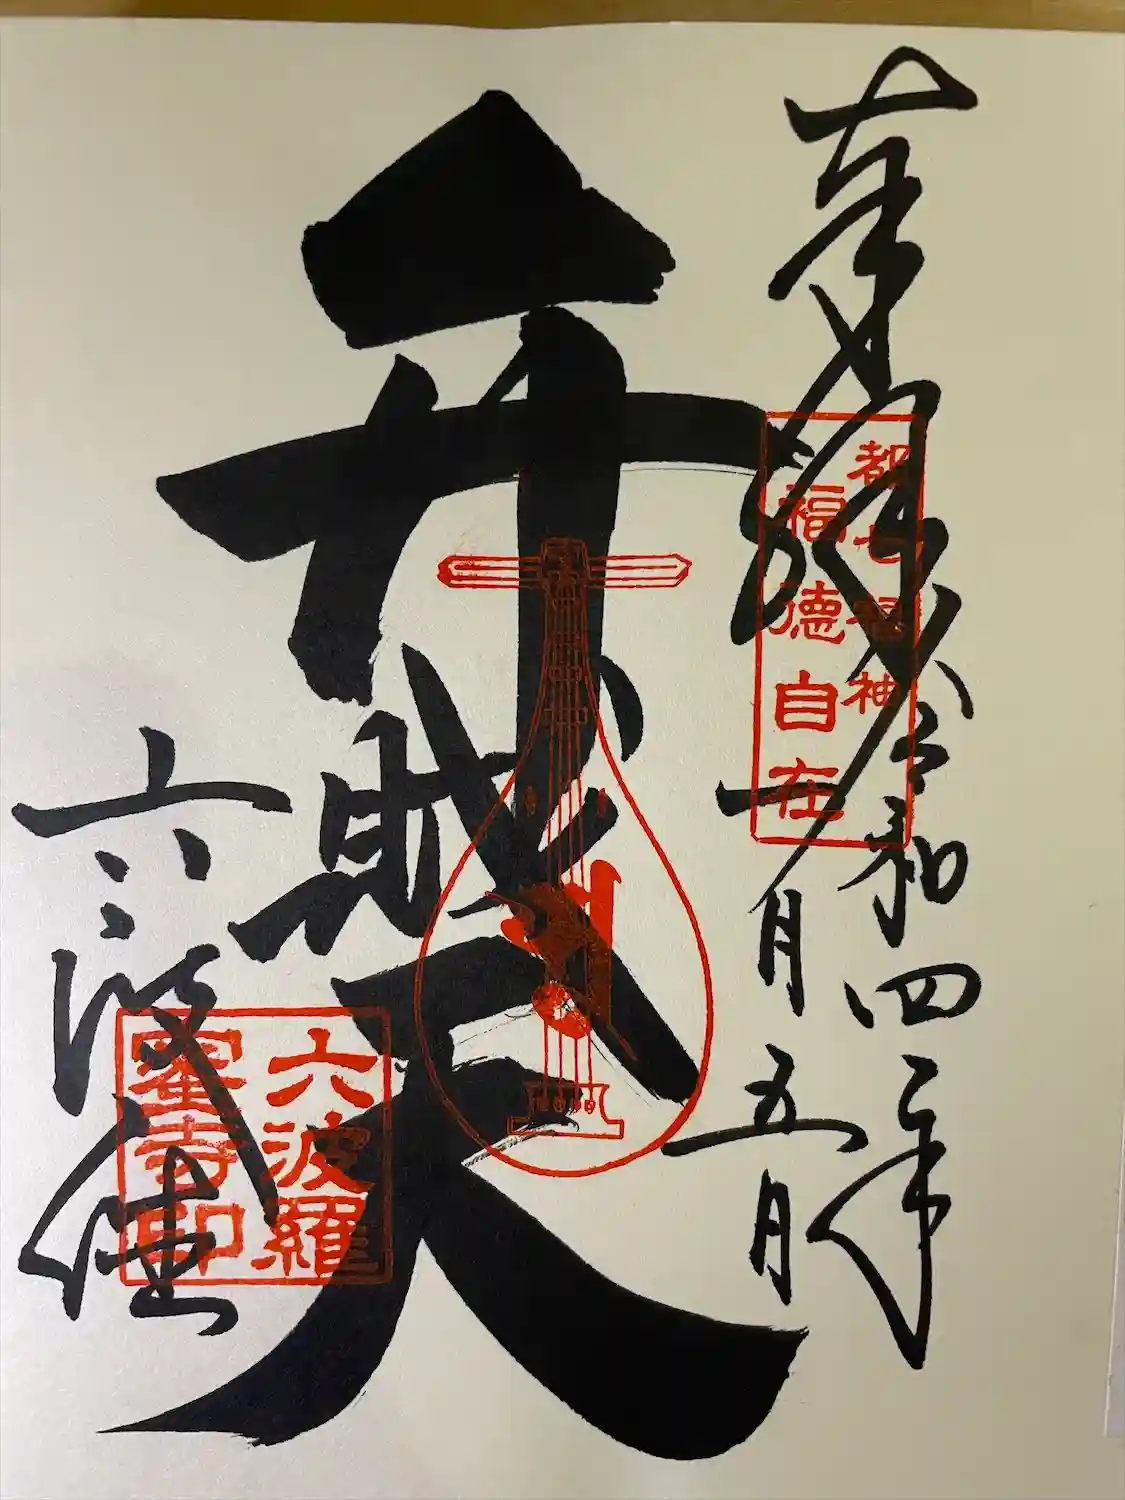 奉拝
令和四年
月五日
都七福神
福德自在
弁財天
六波
六波羅
蜜寺印